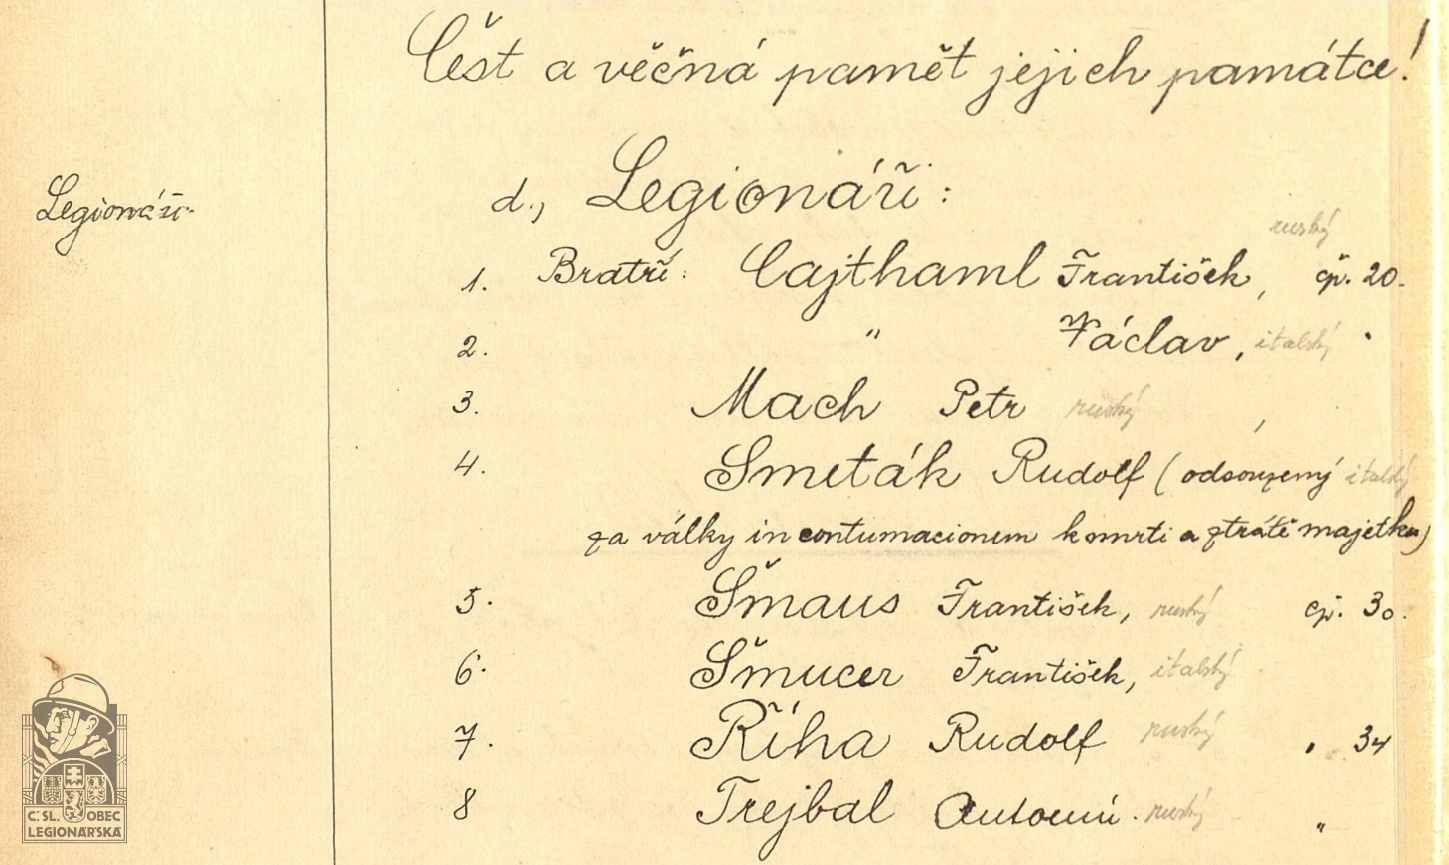 Čest a věčná paměť jejich památce!
Legionáři.
d., Legionáři:
ruský
1. Bratří: Cajthaml František, čp. 20.
2. " Václav, italský "
3. Mach Petr ruský ,
4. Smeták Rudolf (odsouzený italský
za války in contumacionem k smrti a ztrátě majetku)
5. Šmaus František, ruský čp. 30.
6. Šmucer František, italský
7. Říha Rudolf ruský " 34
8 Trejbal Antonín. ruský "
Č. SL. OBEC
LEGIONÁŘSKÁ